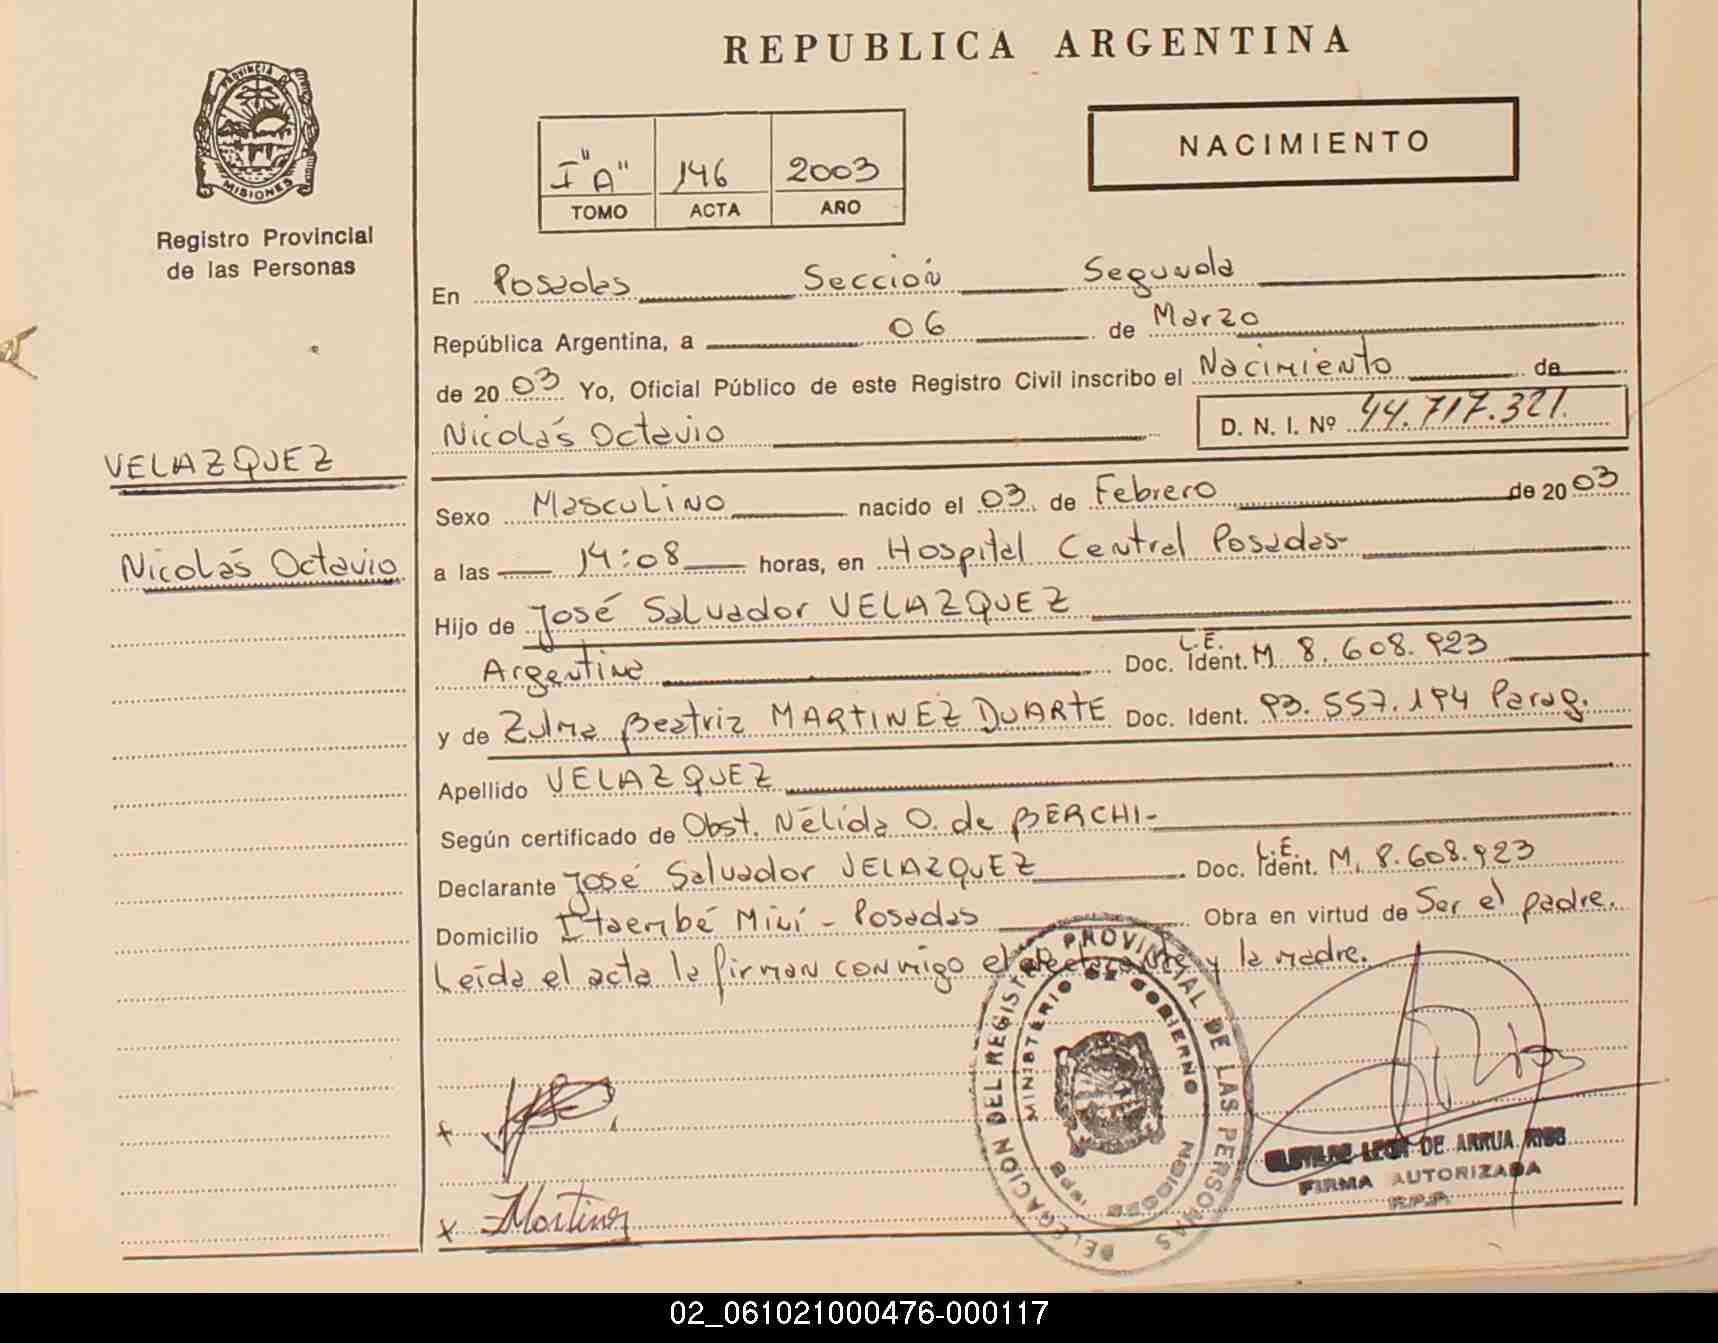 REPUBLICA ARGENTINA
PROVINCIA DE
MISIONES
Registro Provincial
de las Personas
I "A" 146 2003
TOMO ACTA AÑO
NACIMIENTO
En Posadas Sección Segunda
República Argentina, a 06 de Marzo
de 2003 Yo, Oficial Público de este Registro Civil inscribo el Nacimiento de
Nicolás Octavio D. N. I. Nº 44.717.321.
VELAZQUEZ
Nicolás Octavio
Sexo Masculino nacido el 03 de Febrero de 2003
a las 14:08 horas, en Hospital Central Posadas-
Hijo de José Salvador VELAZQUEZ
Argentino Doc. Ident. L.E. M 8.608.923
y de Zulma Beatriz MARTINEZ DUARTE Doc. Ident. 93.557.194 Parag.
Apellido VELAZQUEZ
Según certificado de Obst. Nélida O. de BERCHI-
Declarante José Salvador VELAZQUEZ Doc. Ident. L.E. M. 8.608.923
Domicilio Itaembé Miní - Posadas Obra en virtud de Ser el padre.
Leída el acta la firman conmigo el declarante y la madre.
DELEGACION DEL REGISTRO PROVINCIAL DE LAS PERSONAS
MINISTERIO DE GOBIERNO
MISIONES
x
x Martinez
Rios
LEON DE ARRUA RIOS
FIRMA AUTORIZADA
R.P.P.
02_061021000476-000117